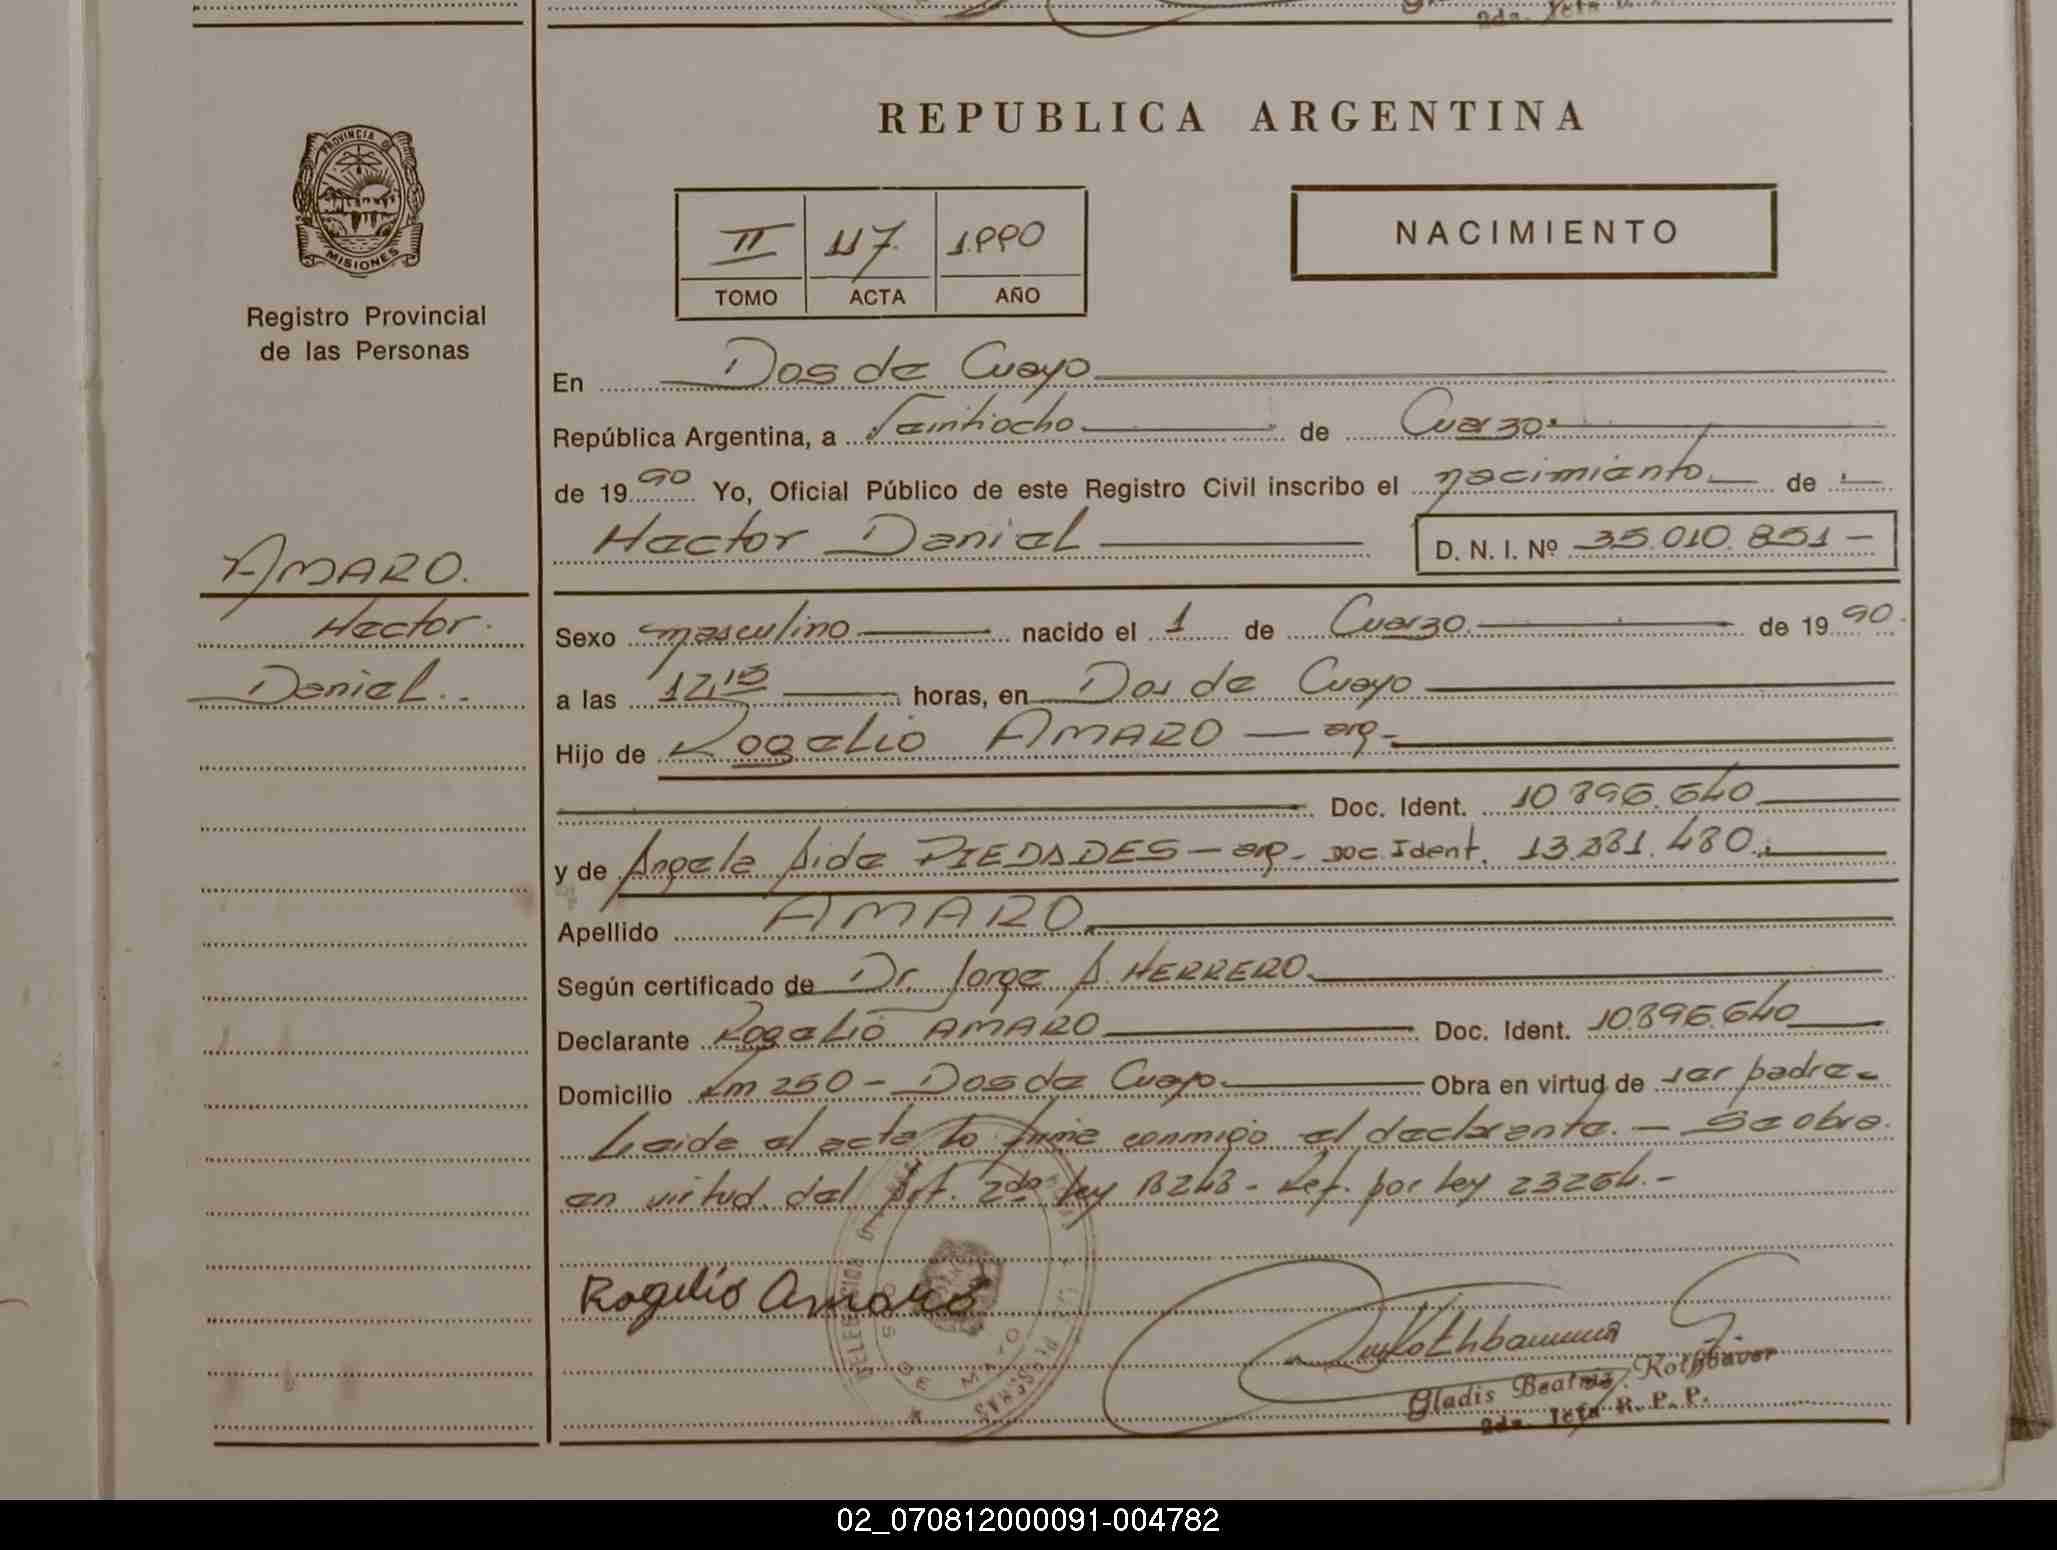 REPUBLICA ARGENTINA
PROVINCIA DE
MISIONES
Registro Provincial
de las Personas
II 117 1.990
TOMO ACTA AÑO
NACIMIENTO
En Dos de Mayo
República Argentina, a Veintiocho de Marzo
de 1990 Yo, Oficial Público de este Registro Civil inscribo el nacimiento de
Hector Daniel D. N. I. Nº 35.010.851-
AMARO.
Hector
Daniel.
Sexo masculino nacido el 1 de Marzo de 1990.
a las 12,15 horas, en Dos de Mayo
Hijo de Rogelio AMARO - arg-
Doc. Ident. 10.896.640
y de Angela Aida PIEDADES - arg- Doc. Ident. 13.881.480.
Apellido AMARO
Según certificado de Dr. Jorge A. HERRERO
Declarante Rogelio AMARO Doc. Ident. 10.896.640
Domicilio Km 250 - Dos de Mayo Obra en virtud de ser padre-
Leida el acta la firma conmigo el declarante. - Se obra
en virtud del Art. 2do ley 18248 - Ref. por ley 23264.-
Rogelio Amaro
DOS DE MAYO
Gladis Beatriz Rothbauer
R. P. P.
02_070812000091-004782